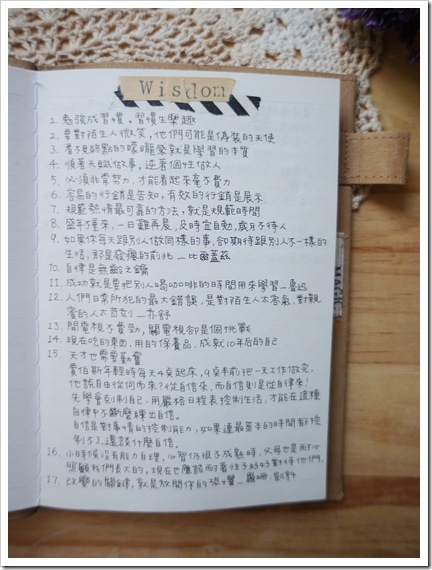 Wisdom
1. 勉強成習慣，習慣生興趣
2. 要對陌生人微笑，他們可能是偽裝的天使
3. 看不見終點的朦朧感就是學習的本質
4. 順著天賦做事，逆著個性做人
5. 必須非常努力，才能看起來毫不費力
6. 容易的行銷是告知，有效的行銷是展示
7. 規範熱情最可靠的方法，就是規範時間
8. 盛年不重來，一日難再晨，及時宜自勉，歲月不待人
9. 如果你每天跟別人做同樣的事，卻期待跟別人不一樣的
生活，那是發瘋的前兆 —比爾蓋茲
10. 自律是無齡之鑰
11. 成功就是要把別人喝咖啡的時間用來學習—魯迅
12. 人們日常所犯的最大錯誤，是對陌生人太客氣，對親
密的人太苛刻 —亦舒
13. 開電視不費勁，關電視卻是個挑戰
14. 現在吃的東西，用的保養品，成就10年後的自己
15. 天才也需要勤奮
賈伯斯年輕時每天4桌起床，9桌前把一天工作做完。
他說自由從何而來？從自信來，而自信則是從自律來！
先學會剋制自己，用嚴格日程表控制生活，才能在這種
自律中不斷磨練出自信。
自信是對事情的控制能力，如果連最基本的時間都控
制不了，還談什麼自信。
16. 小時候沒有能力自理，心智仍很不成熟時，父母也是而
照顧我們長大的，現在也應該耐著性子好好對待他們。
17. 改變的關鍵，就是放開你的
MAGIC